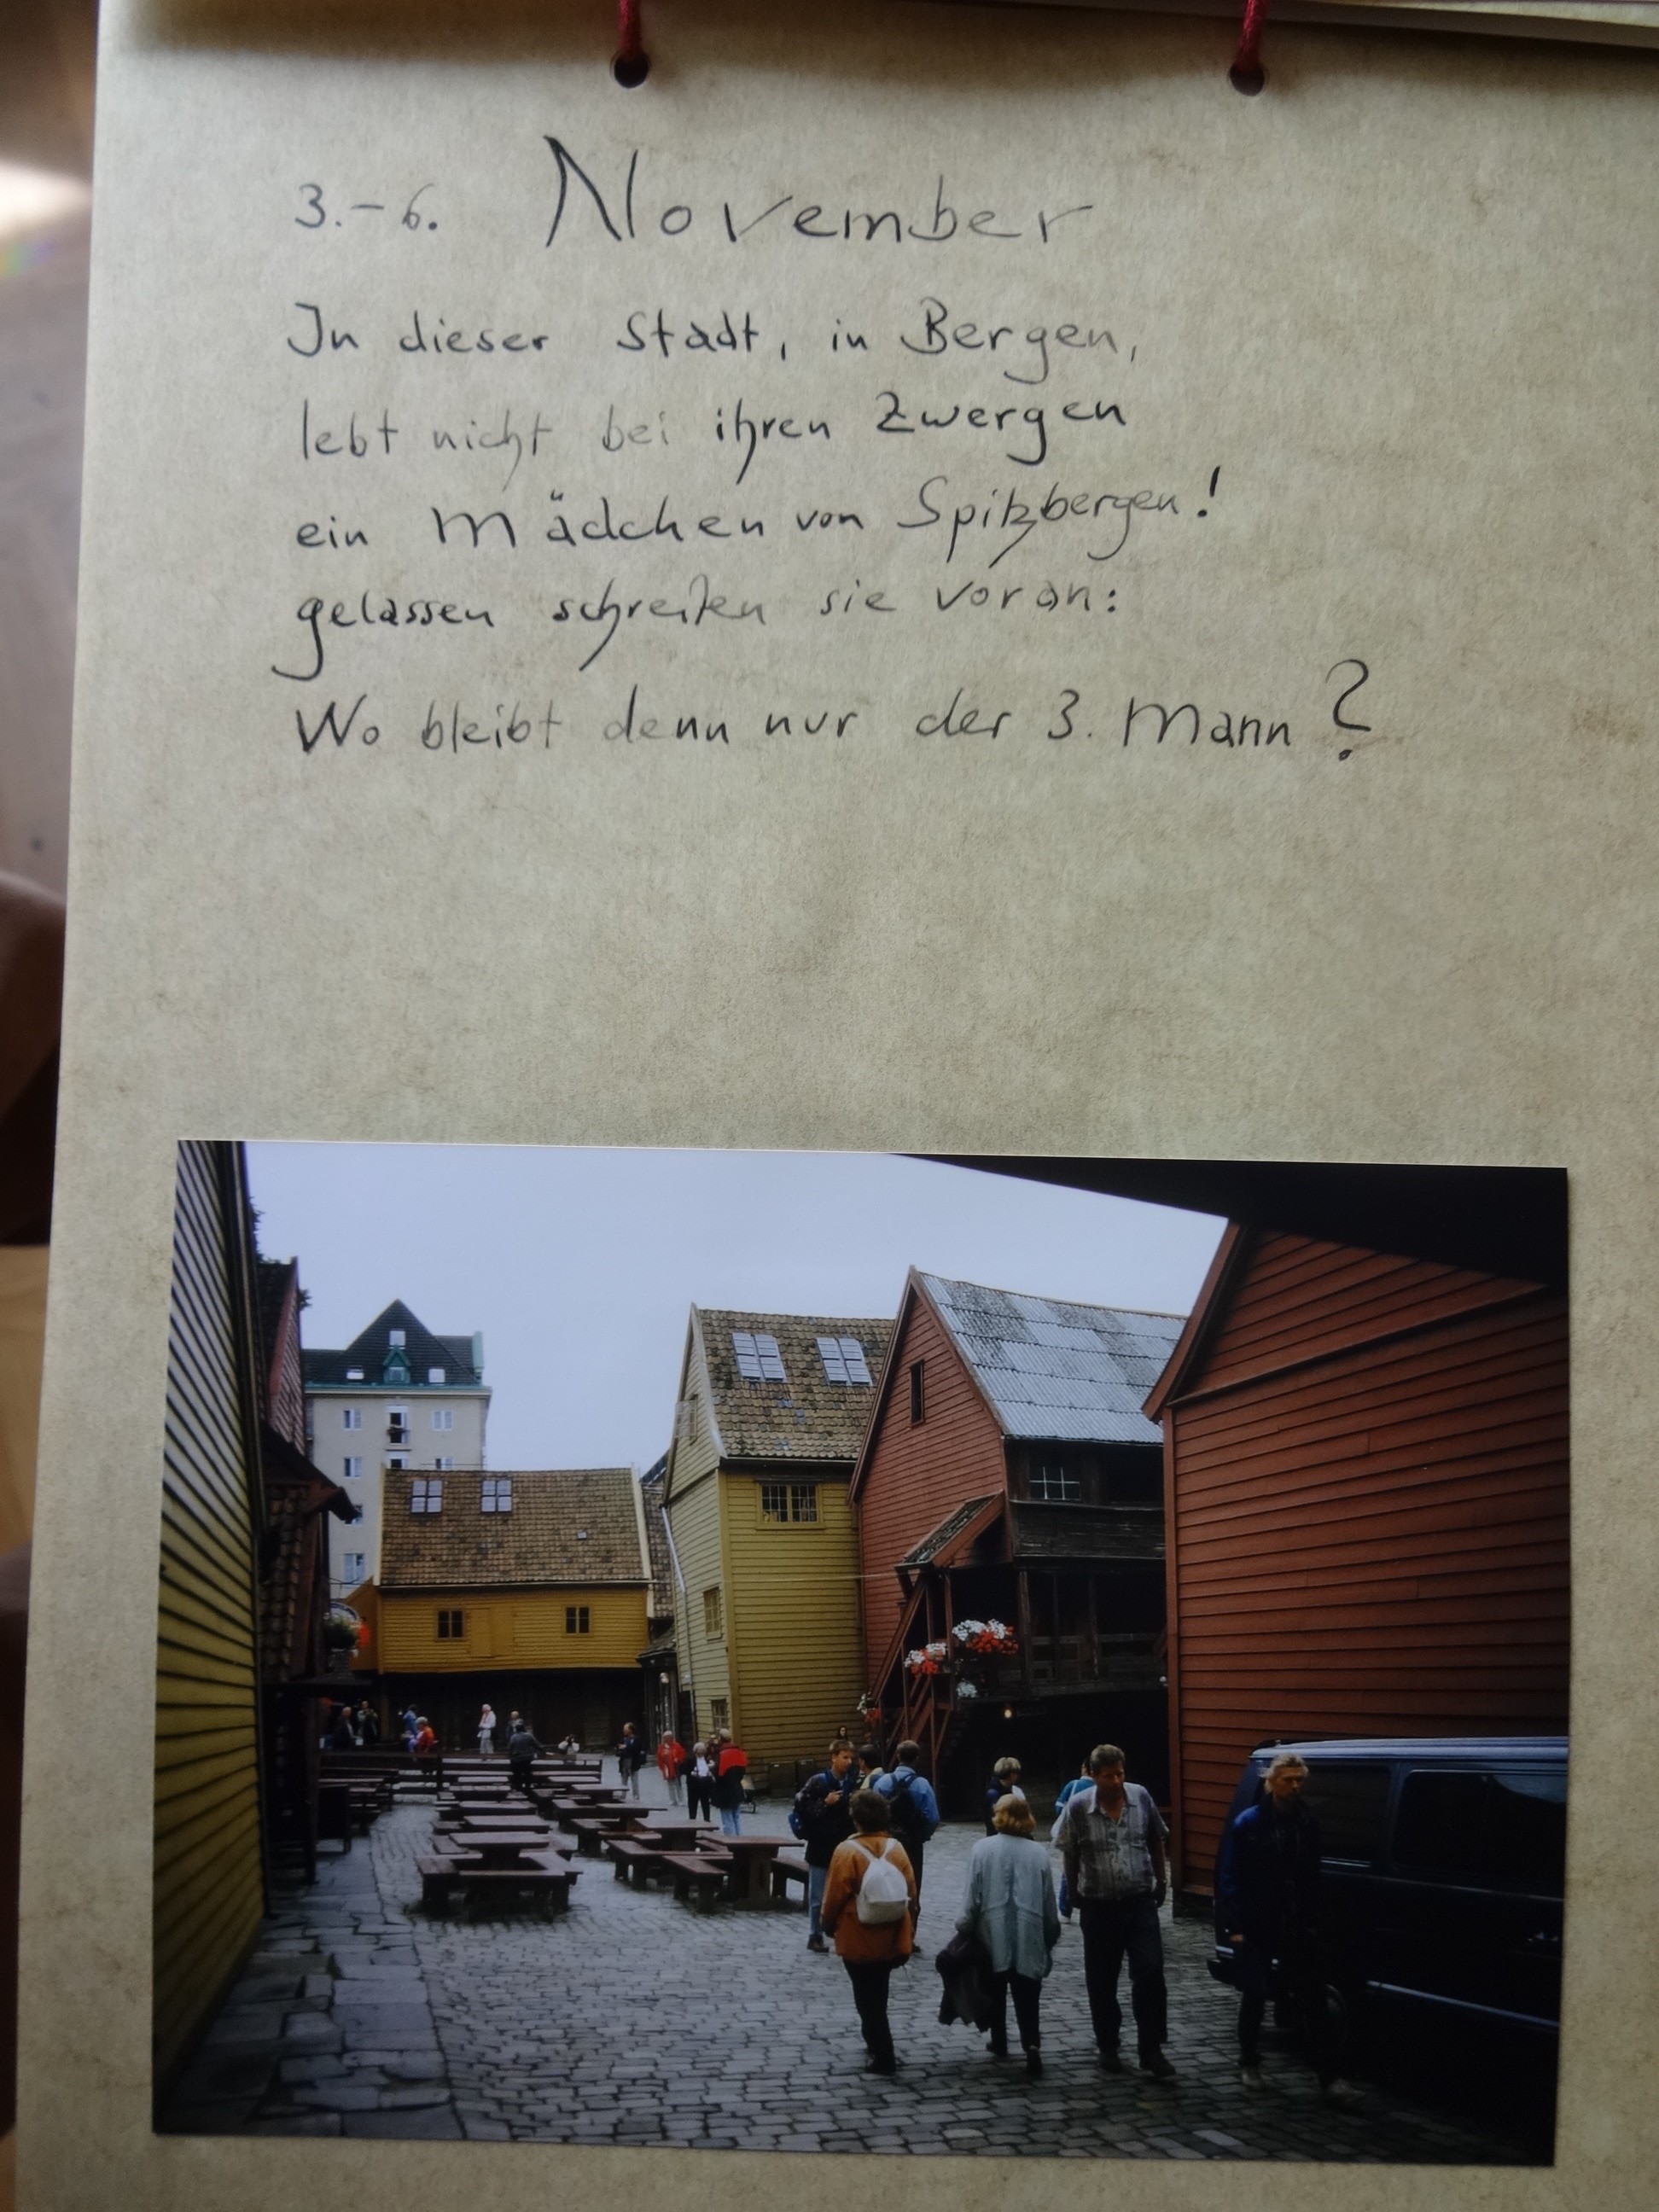 3.-6. November
In dieser Stadt, in Bergen,
lebt nicht bei ihren Zwergen
ein Mädchen von Spitzbergen!
gelassen schreiten sie voran:
Wo bleibt denn nur der 3. Mann?